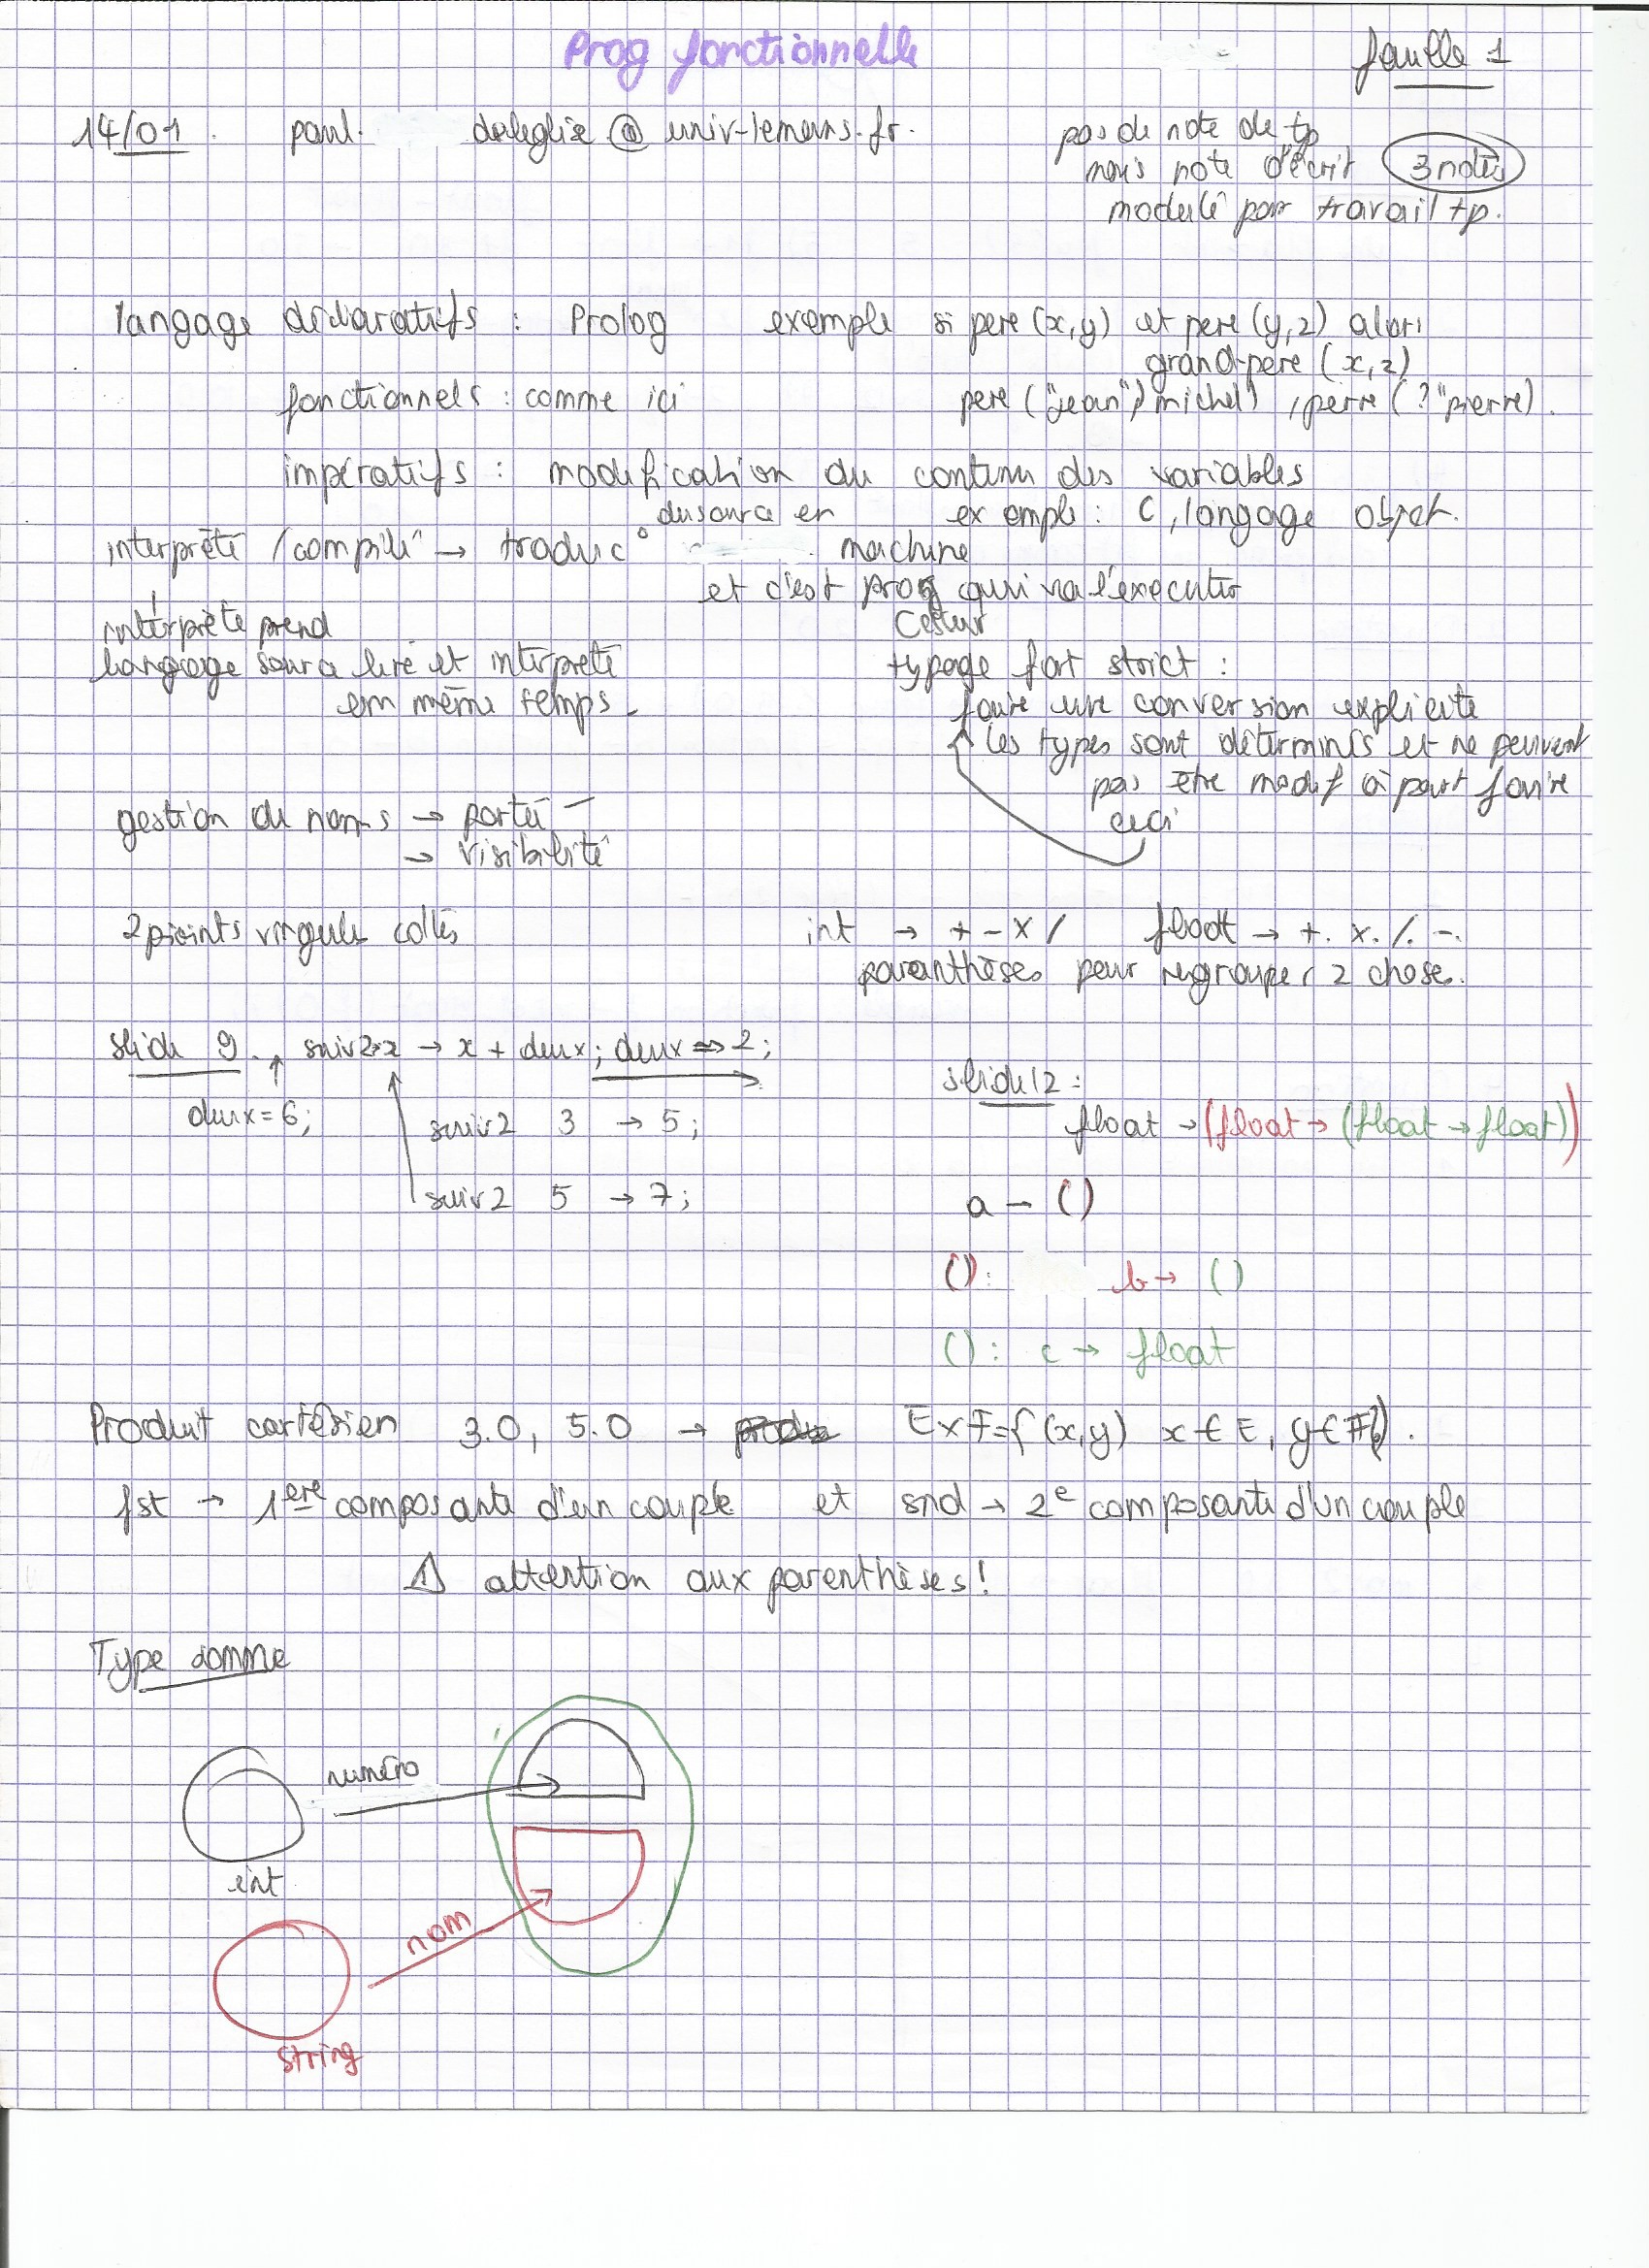 Prog fonctionnelle
feuille 1
14/01 paul. deleglise @ univ-lemans.fr.
pas de note de tp
mais note d'écrit 3 notes
modulé par travail tp.
langage déclaratifs : Prolog exemple si pere (x,y) et pere (y,z) alors
grand-pere (x,z)
fonctionnels : comme ici pere ("jean", michel) , perre (? "pierre).
impératifs : modification du contenu des variables
exemple : C, langage objet.
interprété / compilé → traduc° du source en machine
et c'est prog qui va l'executer
interprète prend
langage source lire et interprété
em même temps.
typage fort strict :
faire une conversion explicite
les types sont déterminés et ne peuvent
pas être modif à part faire
ceci
gestion de noms → portée
→ visibilité
2 points virgule collés
int → + - x / float → +. x. /. -.
paranthèses pour regrouper 2 chose.
slide 9. suiv2 x → x + deux; deux = 2;
deux = 6; suiv2 3 → 5;
suiv2 5 → 7;
slide 12 :
float → (float → (float → float))
a → ()
(): b → ()
(): c → float
Produit cartésien 3.0, 5.0 → E x F = { (x,y) x ∈ E, y ∈ F } .
fst → 1ere composante d'un couple et snd → 2e composante d'un couple
⚠ attention aux parenthèses !
Type somme
numéro
int
nom
string